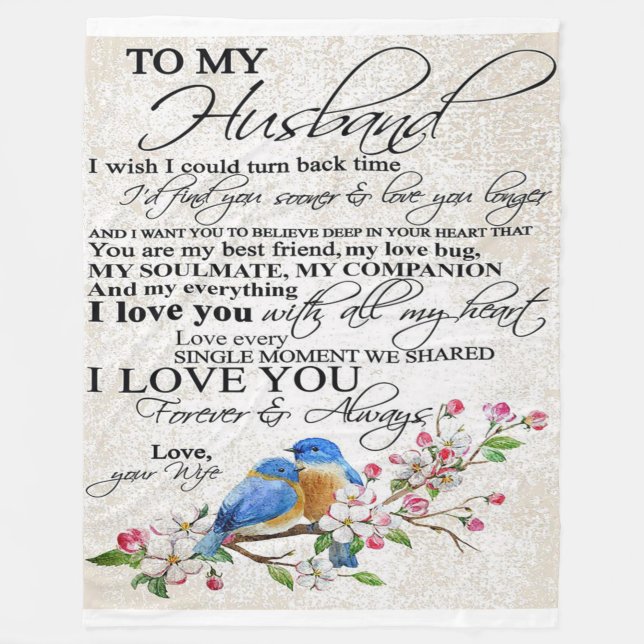 TO MY
Husband
I wish I could turn back time
I'd find you sooner & love you longer
AND I WANT YOU TO BELIEVE DEEP IN YOUR HEART THAT
You are my best friend, my love bug,
MY SOULMATE, MY COMPANION
And my everything
I love you with all my heart
Love every
SINGLE MOMENT WE SHARED
I LOVE YOU
Forever & Always
Love,
your Wife